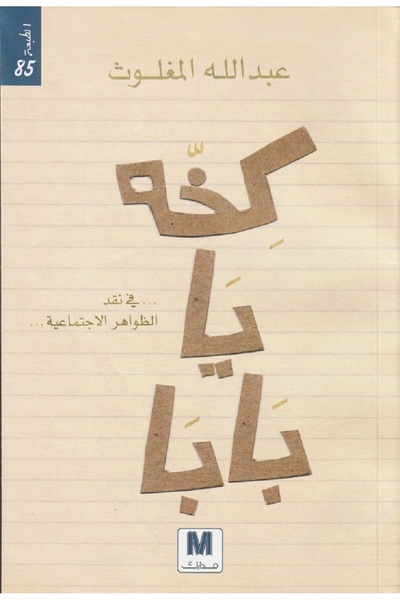 الطبعة
85
عبدالله المغلوث
كخّه
يَا
بَابَا
...في نقد
الظواهر الاجتماعية...
M
مدارك